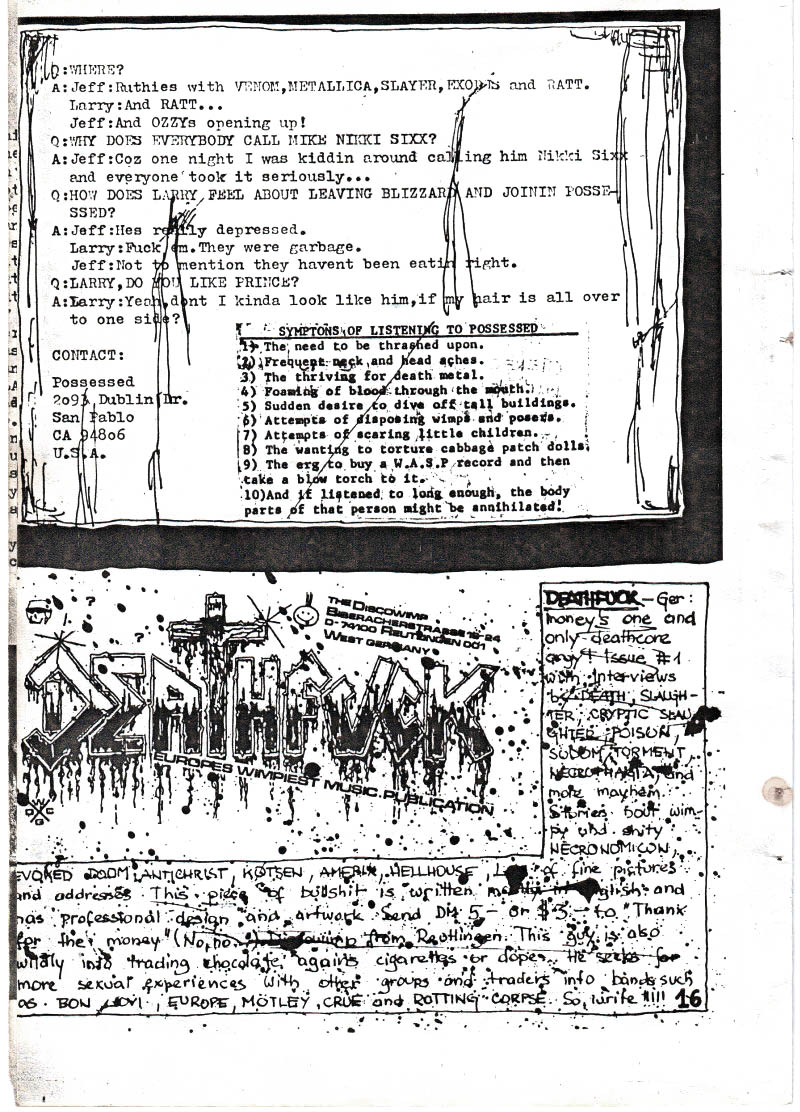 Q:WHERE?
A:Jeff:Ruthies with VENOM,METALLICA,SLAYER,EXODUS and RATT.
Larry:And RATT...
Jeff:And OZZYs opening up!
Q:WHY DOES EVERYBODY CALL MIKE NIKKI SIXX?
A:Jeff:Coz one night I was kiddin around calling him Nikki Sixx
and everyone took it seriously...
Q:HOW DOES LARRY FEEL ABOUT LEAVING BLIZZARD AND JOININ POSSE-
SSED?
A:Jeff:Hes really depressed.
Larry:Fuck em.They were garbage.
Jeff:Not to mention they havent been eatin right.
Q:LARRY,DO YOU LIKE PRINCE?
A:Larry:Yeah,dont I kinda look like him,if my hair is all over
to one side?
CONTACT:
Possessed
Dublin Dr.
San Pablo
CA 94806
U.S.A.
SYMPTONS OF LISTENING TO POSSESSED
1) The need to be thrashed upon.
2) Frequent neck and head aches.
3) The thriving for death metal.
4) Foaming of blood through the mouth.
5) Sudden desire to dive off tall buildings.
6) Attempts of disposing wimps and posers.
7) Attempts of scaring little children.
8) The wanting to torture cabbage patch dolls.
9) The erg to buy a W.A.S.P record and then
take a blow torch to it.
10)And if listened to long enough, the body
parts of that person might be annihilated!
THE DISCOWIMP
BIBERACHERSTRASSE
D-74100 REUTLINGEN 001
WEST GERMANY
DEATHFUCK
EUROPES WIMPIEST MUSIC PUBLICATION
DEATHFUCK - Ger:
money's one and
only deathcore
Issue #1
with interviews
by DEATH, SLAUGH-
TER, CRYPTIC SLAU
GHTED, POISON,
SODOM, TORMENT,
NECROPHAGIA, and
more mayhem.
Stories bout wim-
py und shity
NECRONOMICON,
EVOKED DOOM, ANTICHRIST, KOTSEN, AMERIX, HELLHOUSE, of fine pictures
and addresses This piece of bullshit is written and
has professional design and artwork Send DM 5,- or $3,- to "Thank
for the money" (No,no..) Discowimp from Reutlingen. This guy is also
wildly into trading chocolate agains cigarettes or dopes. He seeks for
more sexual experiences with other groups and traders into bands such
as BON JOVI, EUROPE, MÖTLEY CRUE and ROTTING CORPSE. So, write !!!!
16